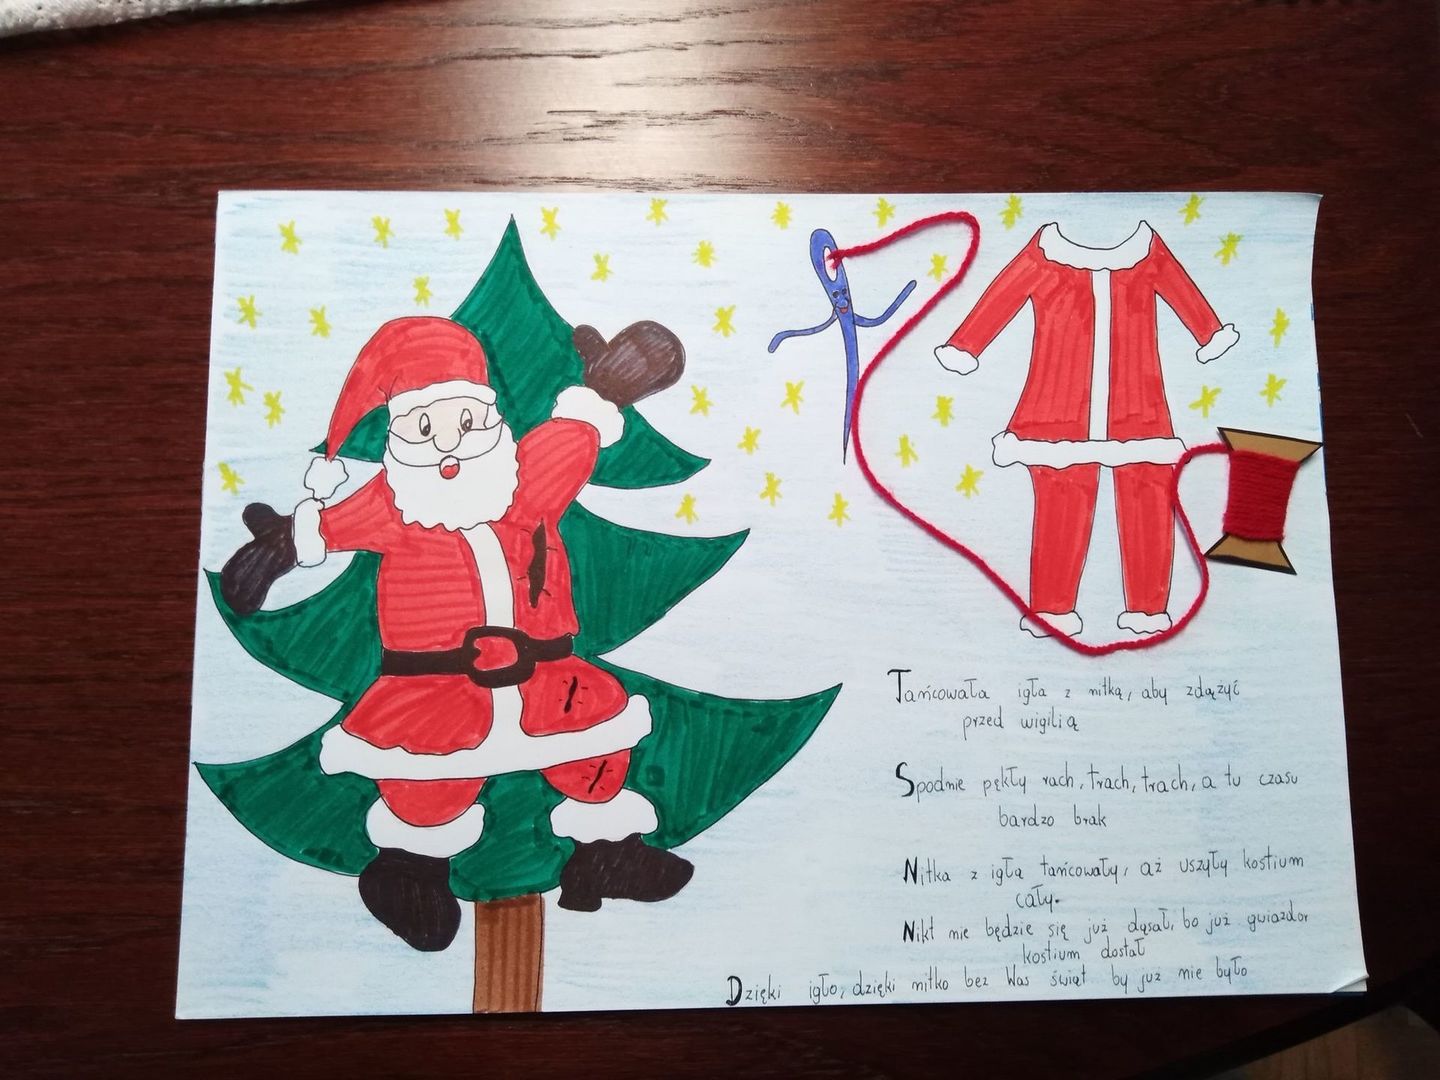 Tańcowała igła z nitką, aby zdążyć
przed wigilią
Spodnie pękły rach, trach, trach, a tu czasu
bardzo brak
Nitka z igłą tańcowały, aż uszyły kostium
cały.
Nikt nie będzie się już dąsał, bo już gwiazdor
kostium dostał
Dzięki igło, dzięki nitko bez Was świąt by już nie było